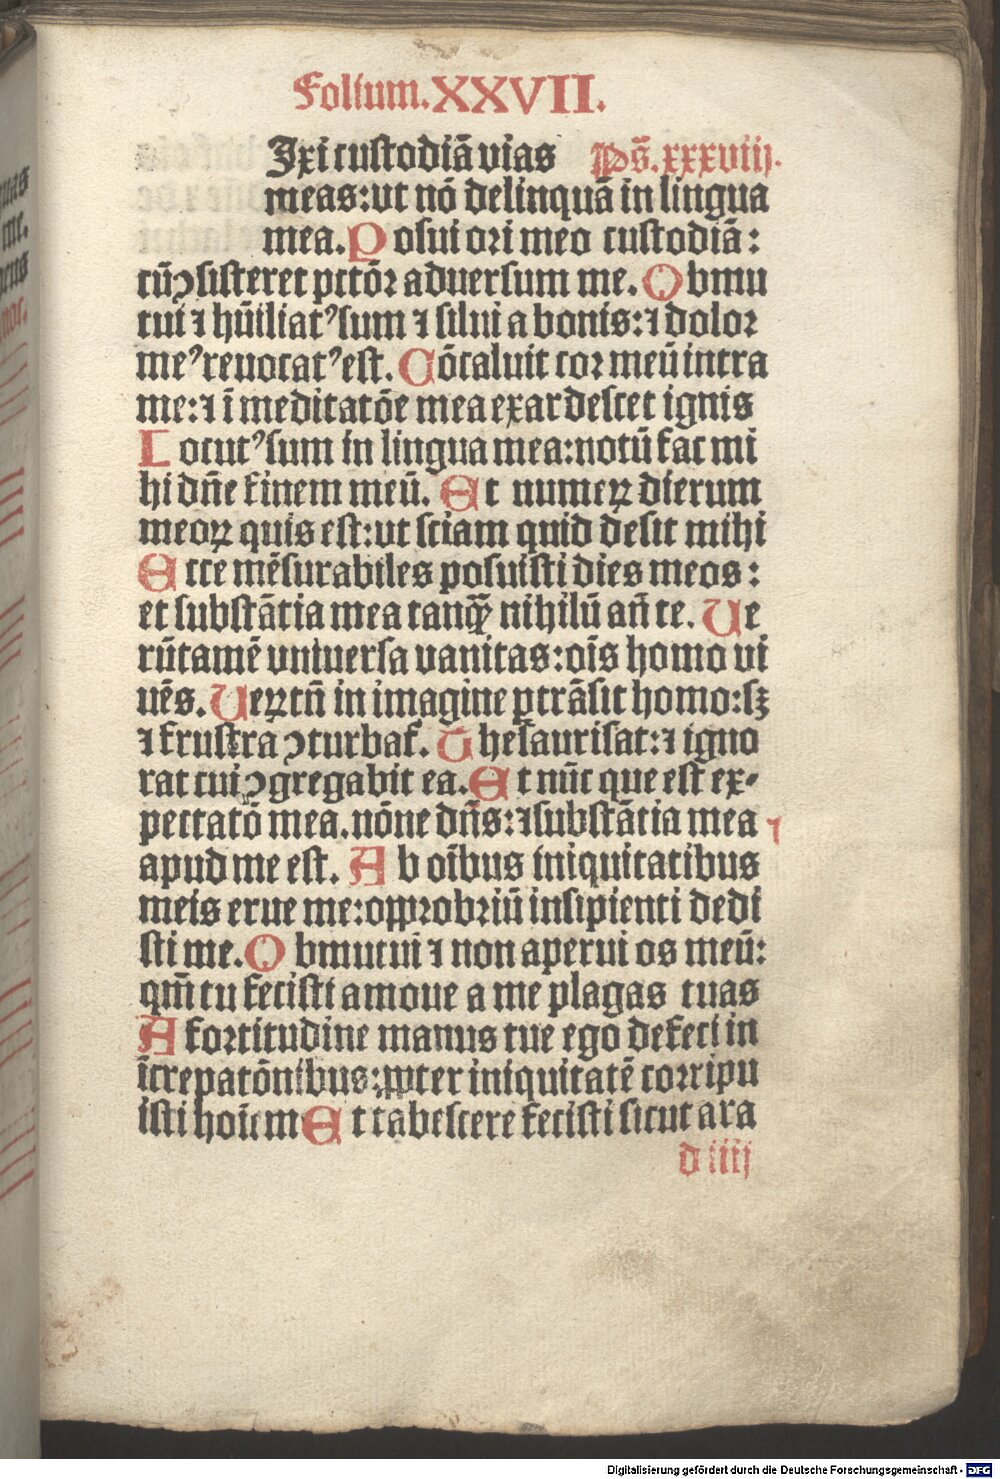 Folium.XXVII.
Ixi custodiā vias Ps̄.xxxviij.
meas:ut nō delinquā in lingua
mea.Posui ori meo custodiā:
cūↄsisteret pctōꝛ adversum me.Obmu
tui ⁊ hūiliatꝰsum ⁊ silui a bonis:⁊ dolor
meꝰrenovatꝰest.Cōcaluit cor meū intra
me:⁊ ī meditatōe mea exardescet ignis
Locutꝰsum in lingua mea:notū fac mi
hi dn̄e finem meū.Et numeꝝ dierum
meoꝝ quis est:ut sciam quid desit mihi
Ecce mēsurabiles posuisti dies meos:
et substātia mea tanqꝫ̄ nihilū an̄ te.Ve
rūtamē universa vanitas:oīs homo vi
vēs.Veꝝtn̄ in imagine ꝑtrāsit homo:sꝫ
⁊ frustra ↄturbat̉.Thesaurisat:⁊ igno
rat cui ↄgregabit ea.Et nūc que est ex⸗
pectatō mea.nōne dn̄s:⁊substātia mea
apud me est.Ab oībus iniquitatibus
meis erue me:opprobriū insipienti dedi
sti me.Obmutui ⁊ non aperui os meū:
qm̄ tu fecisti amove a me plagas tuas
A fortitudine manus tue ego defeci in
īcrepatōnibus:ꝓpter iniquitatē corripu
isti hoīem Et tabescere fecisti sicut ara
d iiij
Digitalisierung gefördert durch die Deutsche Forschungsgemeinschaft - DFG